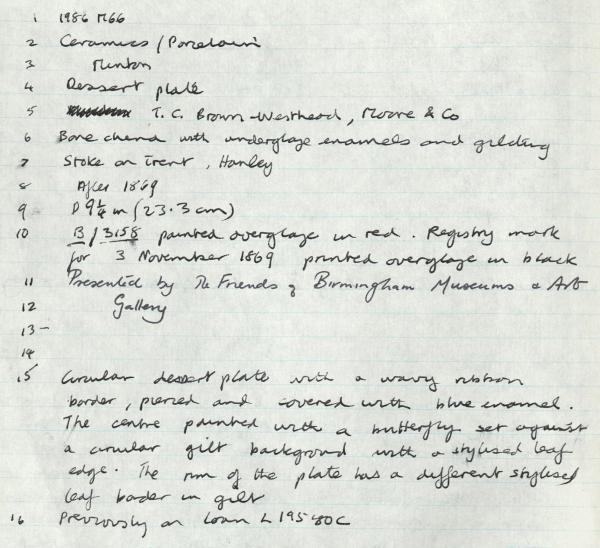 1 1986 M66
2 Ceramics / Porcelain
3 Minton
4 Dessert plate
5 T. C. Brown-Westhead, Moore & Co
6 Bone china with underglaze enamels and gilding
7 Stoke on Trent, Hanley
8 After 1869
9 D 9¼ in (23.3 cm)
10 B/3158 painted overglaze in red. Registry mark
for 3 November 1869 printed overglaze in black
11 Presented by The Friends of Birmingham Museums & Art
12 Gallery
13 -
14
15 Circular dessert plate with a wavy ribbon
border, pierced and covered with blue enamel.
The centre painted with a butterfly set against
a circular gilt background with a stylised leaf
edge. The rim of the plate has a different stylised
leaf border in gilt
16 Previously on loan L195